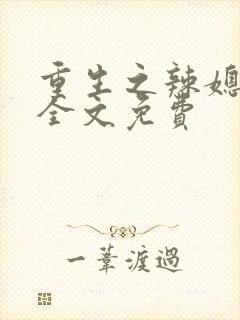 重生之辣媳
全文免費
一葦渡過